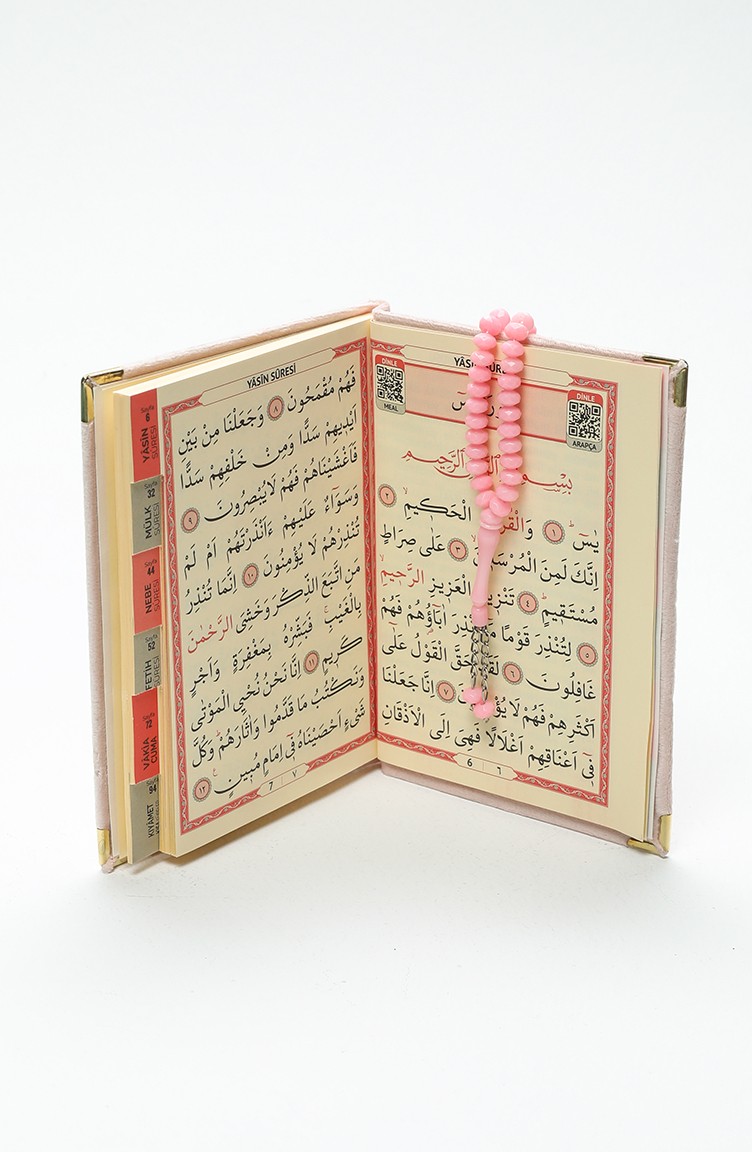 DİNLE
ARAPÇA
YÂSİN
DİNLE
MEAL
بِسْمِ الرَّحِيمِ
يٰسٓ ۚ ١ الْحَكِيمِ ۙ ٢
اِنَّكَ لَمِنَ ۙ ٣ عَلٰى صِرَاطٍ
مُسْتَقِيمٍ ۜ ٤ الْعَزِيزِ الرَّحِيمِ ۙ
٥ لِتُنْذِرَ قَوْمًا اٰبَٓاؤُهُمْ فَهُمْ
غَافِلُونَ ٦ حَقَّ الْقَوْلُ عَلٰٓى
اَكْثَرِهِمْ فَهُمْ لَا ٧ اِنَّا جَعَلْنَا
فٖٓى اَعْنَاقِهِمْ اَغْلَالًا فَهِىَ اِلَى الْاَذْقَانِ
6 ٦
YÂSİN SÛRESİ
فَهُمْ مُقْمَحُونَ ٨ وَجَعَلْنَا مِنْ بَيْنِ
اَيْدٖيهِمْ سَدًّا وَمِنْ خَلْفِهِمْ سَدًّا
فَاَغْشَيْنَاهُمْ فَهُمْ لَا يُبْصِرُونَ ٩
وَسَوَٓاءٌ عَلَيْهِمْ ءَاَنْذَرْتَهُمْ اَمْ لَمْ
تُنْذِرْهُمْ لَا يُؤْمِنُونَ ١٠ اِنَّمَا تُنْذِرُ
مَنِ اتَّبَعَ الذِّكْرَ وَخَشِىَ الرَّحْمٰنَ
بِالْغَيْبِۚ فَبَشِّرْهُ بِمَغْفِرَةٍ وَاَجْرٍ
كَرٖيمٍ ١١ اِنَّا نَحْنُ نُحْيِى الْمَوْتٰى
وَنَكْتُبُ مَا قَدَّمُوا وَاٰثَارَهُمْۜ وَكُلَّ
شَىْءٍ اَحْصَيْنَاهُ فٖٓى اِمَامٍ مُبٖينٍ ١٢
7 ٧
Sayfa 6
YÂSİN SÛRESİ
Sayfa 32
MÜLK SÛRESİ
Sayfa 44
NEBE SÛRESİ
Sayfa 52
FETİH SÛRESİ
Sayfa 72
VÂKIA CUMA
Sayfa 84
KIYÂMET